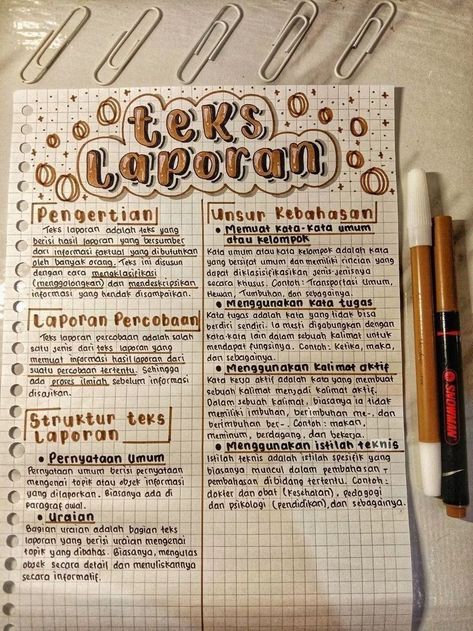 teks
Laporan
Pengertian
Teks laporan adalah teks yang
berisi hasil laporan yang bersumber
dari informasi faktual yang dibutuhkan
oleh banyak orang. Teks ini disusun
dengan cara mengklasifikasi
(menggolongkan) dan mendeskripsikan
informasi yang hendak disampaikan.
Laporan Percobaan
Teks laporan percobaan adalah salah
satu jenis dari teks laporan yang
memuat informasi hasil laporan dari
suatu percobaan tertentu. Sehingga
ada proses ilmiah sebelum informasi
disajikan.
Struktur teks
laporan
• Pernyataan Umum
Pernyataan umum berisi pernyataan
mengenai topik atau objek informasi
yang dilaporkan. Biasanya ada di
paragraf awal.
• Uraian
Bagian uraian adalah bagian teks
laporan yang berisi uraian mengenai
topik yang dibahas. Biasanya, mengulas
objek secara detail dan menuliskannya
secara informatif.
Unsur Kebahasan
• Memuat kata-kata umum
atau kelompok
Kata umum atau kata kelompok adalah kata
yang bersifat umum dan memiliki rincian yang
dapat diklasisifikasifikan jenis-jenisnya
secara khusus. Contoh: Transportasi Umum,
Hewan, Tumbuhan, dan sebagainya.
• Menggunakan Kata tugas
Kata tugas adalah kata yang tidak bisa
berdiri sendiri. Ia mesti digabungkan dengan
kata-kata lain dalam sebuah kalimat untuk
mendapat fungsinya. Contoh: Ketika, maka,
dan sebagainya.
• Menggunakan Kalimat aktif
Kata kerja aktif adalah kata yang membuat
sebuah kalimat menjadi kalimat aktif.
Dalam sebuah kalimat, biasanya ia tidak
memiliki imbuhan, berimbuhan me-, dan
berimbuhan ber-. Contoh: makan,
meminum, berdagang, dan bekerja.
• Menggunakan istilah teknis
Istilah teknis adalah istilah spesifik yang
biasanya muncul dalam pembahasan -
pembahasan di bidang tertentu. Contoh:
dokter dan obat (kesehatan), pedagogi
dan psikologi (pendidikan), dan sebagainya.
SNOWMAN